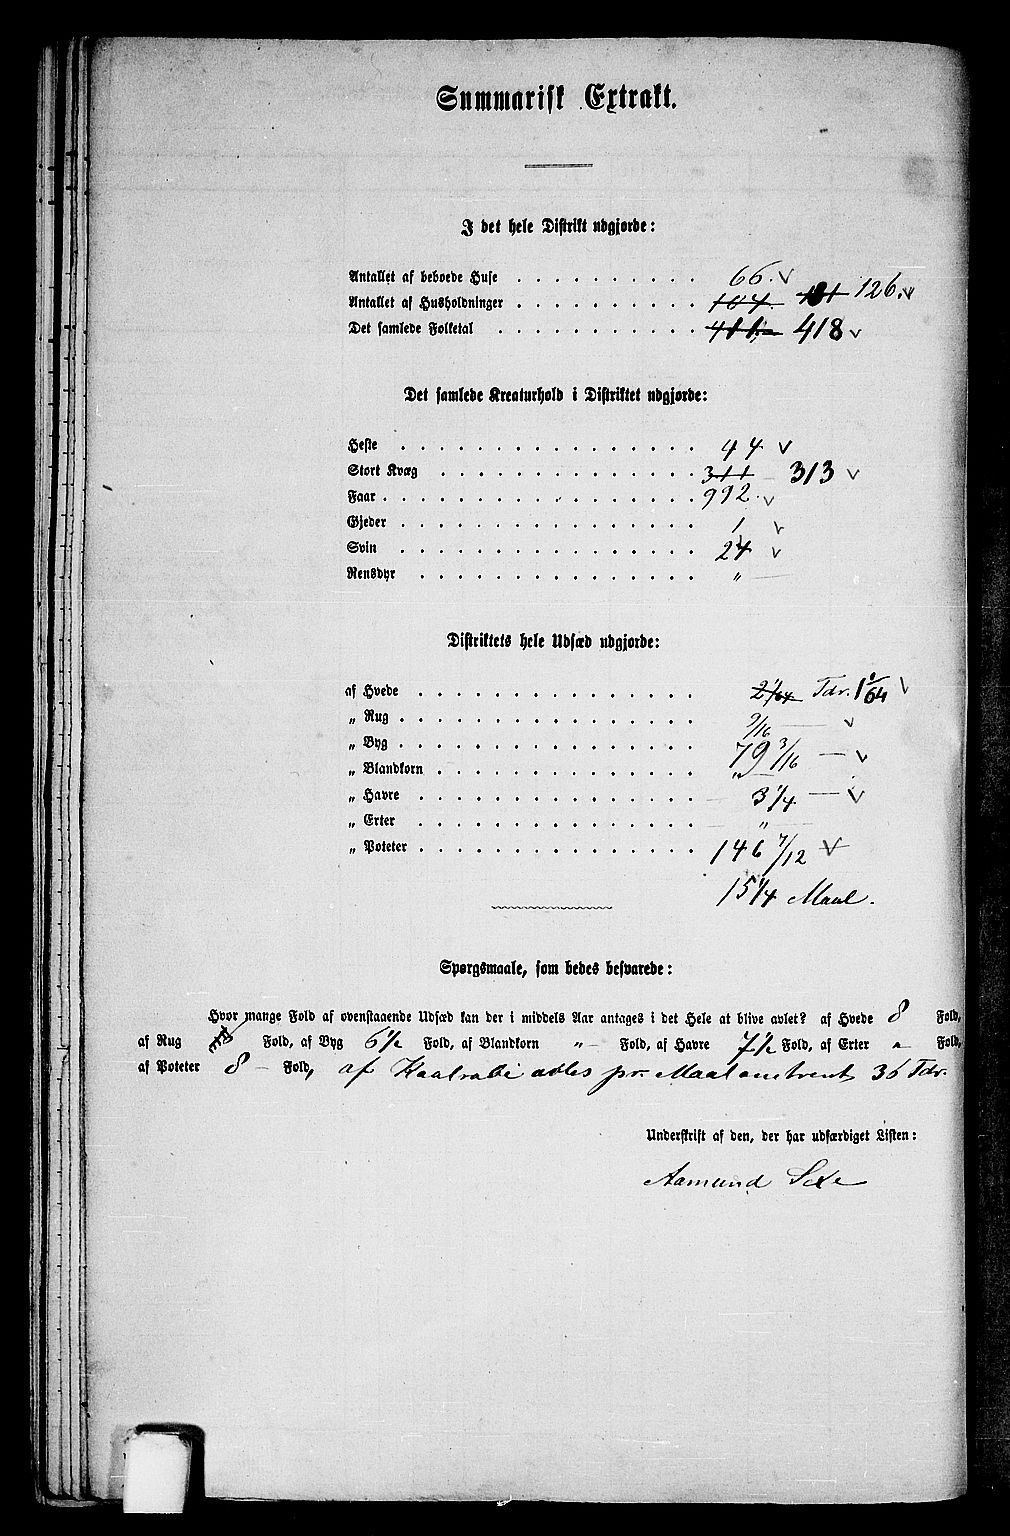 Summarisk Extrakt.
I det hele Distrikt udgjorde:
Antallet af beboede Huse . . . . . . . . . . 66. v
Antallet af Husholdninger . . . . . . . . . . 104. 131 126. v
Det samlede Folketal . . . . . . . . . . . 411. 418 v
Det samlede Kreaturhold i Distriktet udgjorde:
Heste . . . . . . . . . . . . . . . . 44 v
Stort Kvæg . . . . . . . . . . . . . . 311 313 v
Faar . . . . . . . . . . . . . . . . . 992. v
Gjeder . . . . . . . . . . . . . . . . 1 v
Svin . . . . . . . . . . . . . . . . 24 v
Rensdyr . . . . . . . . . . . . . . . "
Distriktets hele Udsæd udgjorde:
af Hvede . . . . . . . . . . . . . . . 2 1/64 Tdr. 1 9/64 v
„ Rug . . . . . . . . . . . . . . . . 9/16 — v
„ Byg . . . . . . . . . . . . . . . . 79 3/16 — v
„ Blandkorn . . . . . . . . . . . . . . "
„ Havre . . . . . . . . . . . . . . . 3 1/4 — v
„ Erter . . . . . . . . . . . . . . . "
„ Poteter . . . . . . . . . . . . . . . 146 7/12 v
15 1/4 Maal.
Spørgsmaale, som bedes besvarede:
Hvor mange Fold af ovenstaaende Udsæd kan der i middels Aar antages i det Hele at blive avlet? af Hvede 8 Fold,
af Rug Fold, af Byg 6 1/2 Fold, af Blandkorn " Fold, af Havre 7 1/2 Fold, af Erter " Fold,
af Poteter 8 – Fold, af Kaalrabi avles pr. Maal omtrent 36 Tdr.
Underskrift af den, der har udfærdiget Listen:
Aamund Sexe